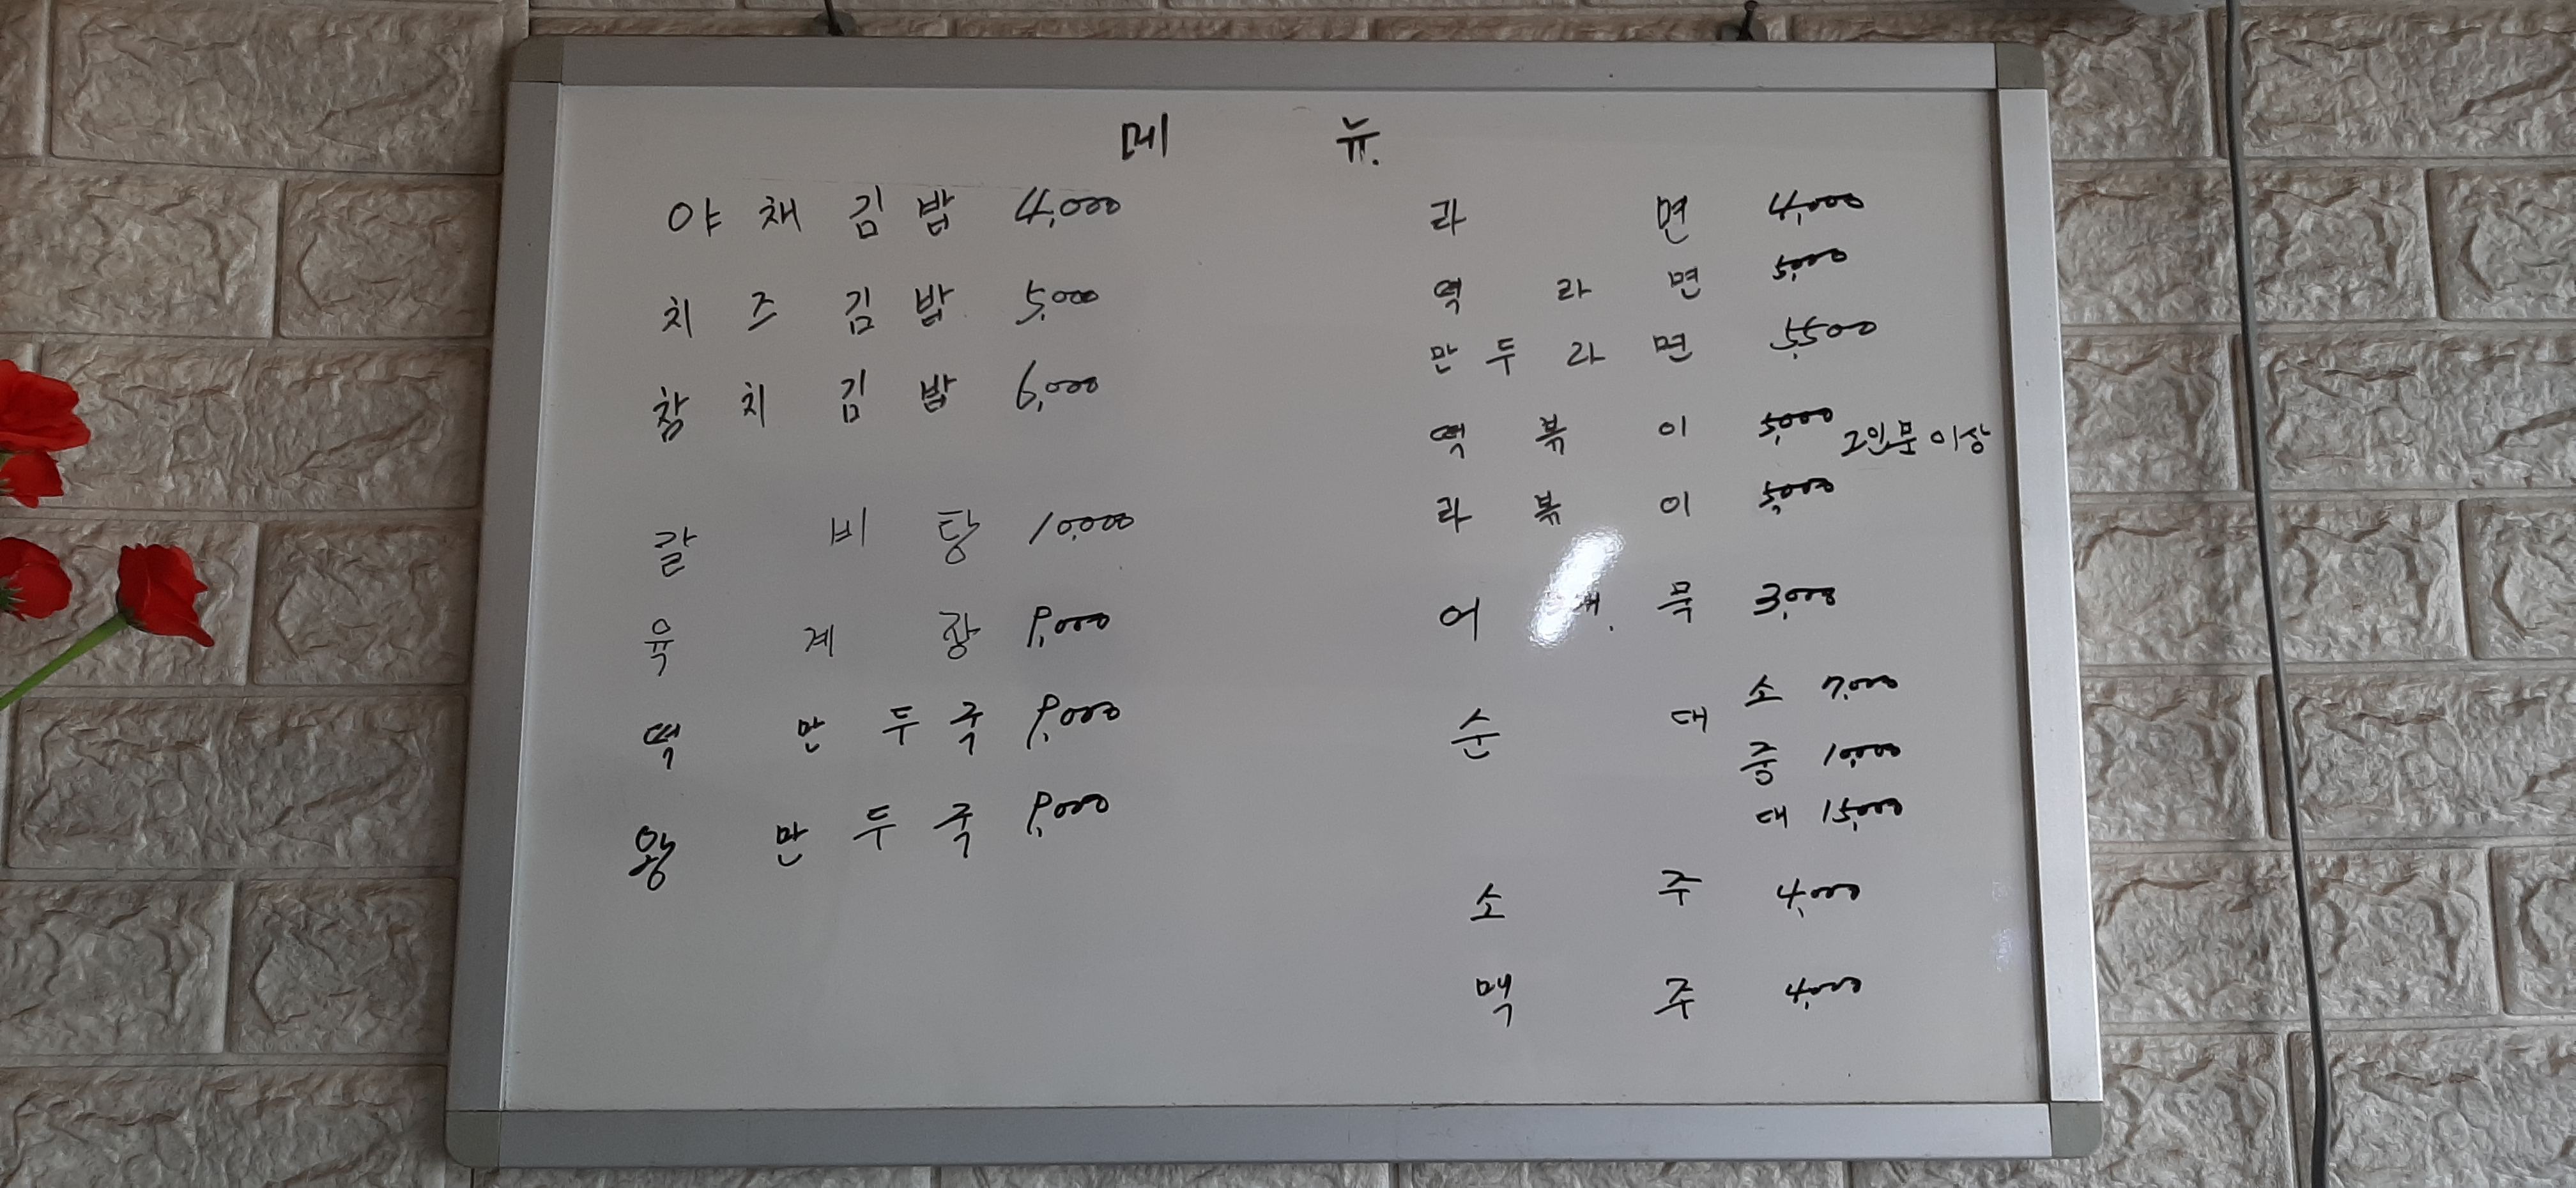 메 뉴.
야채김밥 4,000
치즈김밥 5,000
참치김밥 6,000
갈비탕 10,000
육계장 9,000
떡만두국 9,000
왕만두국 9,000
라면 4,000
떡라면 5,000
만두라면 5,500
떡볶이 5,000 2인분 이상
라볶이 5,000
어묵 3,000
순대 소 7,000
중 10,000
대 15,000
소주 4,000
맥주 4,000